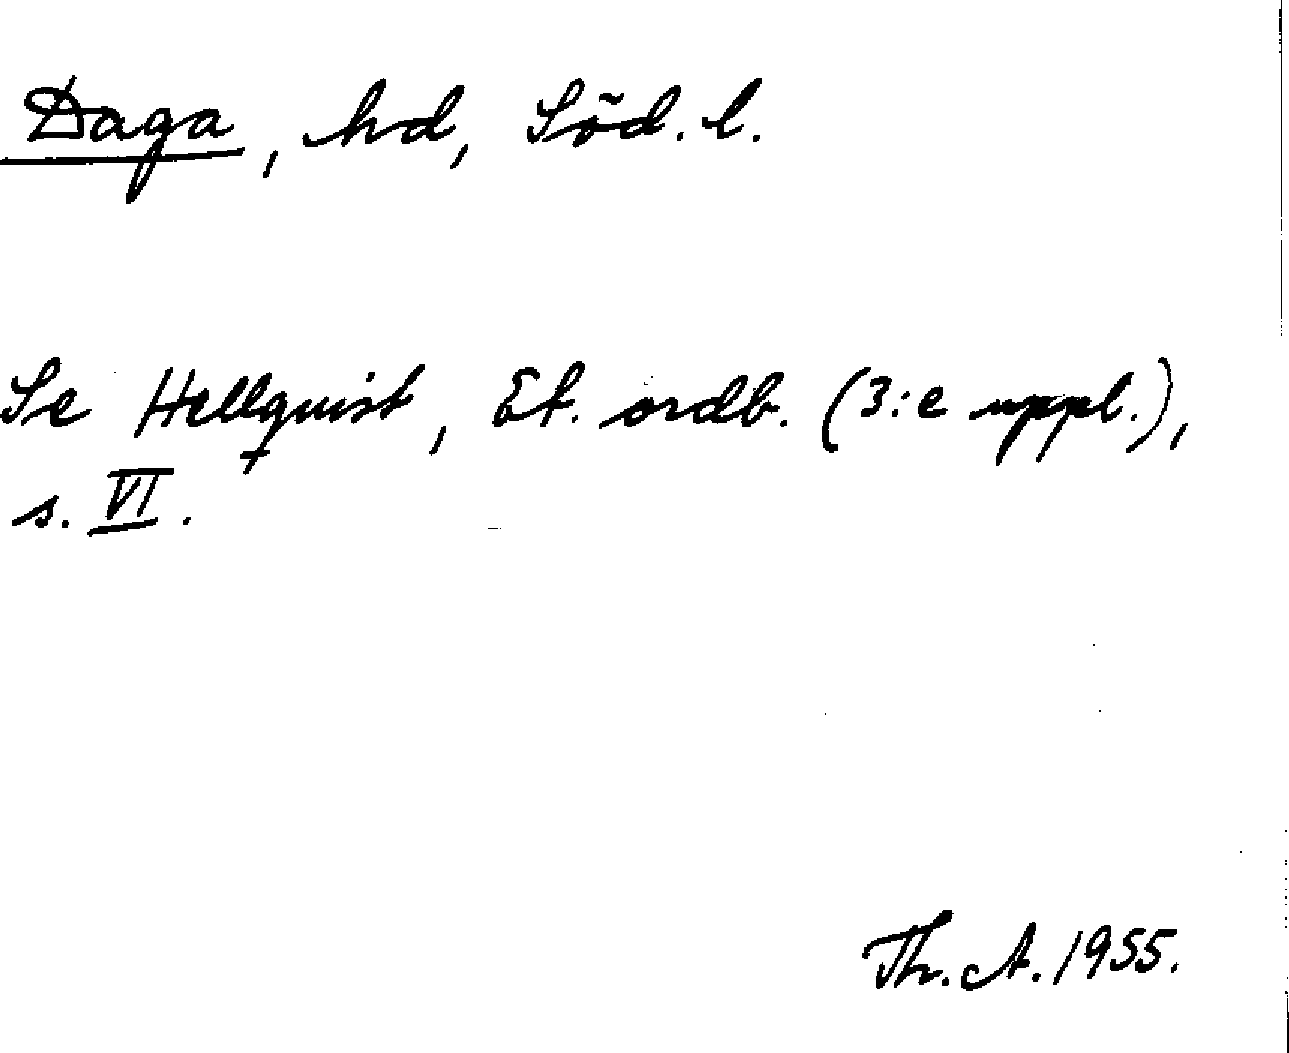 Daga, hd, Söd. l.
Se Hellquist, Et. ordb. (3:e uppl.),
s. VI.
Th. A. 1955.